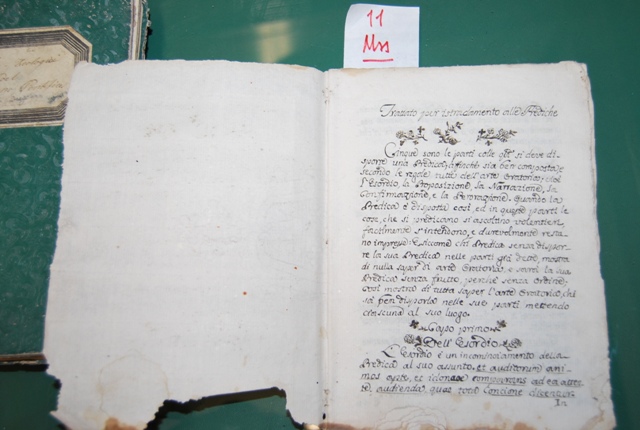 11
Mss
Trattato per istradamento alle Prediche
Cinque sono le parti colle qli si deve di-
sporre una Predica, affinché sia ben composta, e
secondo le regole tutte dell'arte Oratoria, cioè
l'Esordio, la Proposizione, la Narrazione, la
Confirmazione, e la Perorazione. Quando la
Predica è disposta così, ed in queste parti le
cose, che si predicano si ascoltano volentieri,
facilmente s'intendono, e durevolmente resta-
no impresse, siccome chi Predica senza dispor-
re la sua Predica nelle parti già dette, mostra
di nulla saper di arte Oratoria, e sarà la sua
Predica senza frutto, perché senza ordine;
così mostra di tutta saper l'arte Oratoria, chi
sa ben disporla nelle sue parti mettendo
ciascuna al suo luogo.
Capo primo
Dell'Esordio
L'Esordio è un incominciamento della
Predica al suo assunto, et auditorum ani-
mos apte, et idonee comparans ad ea atten-
te audienda, quae tota Concione dicentur.
In